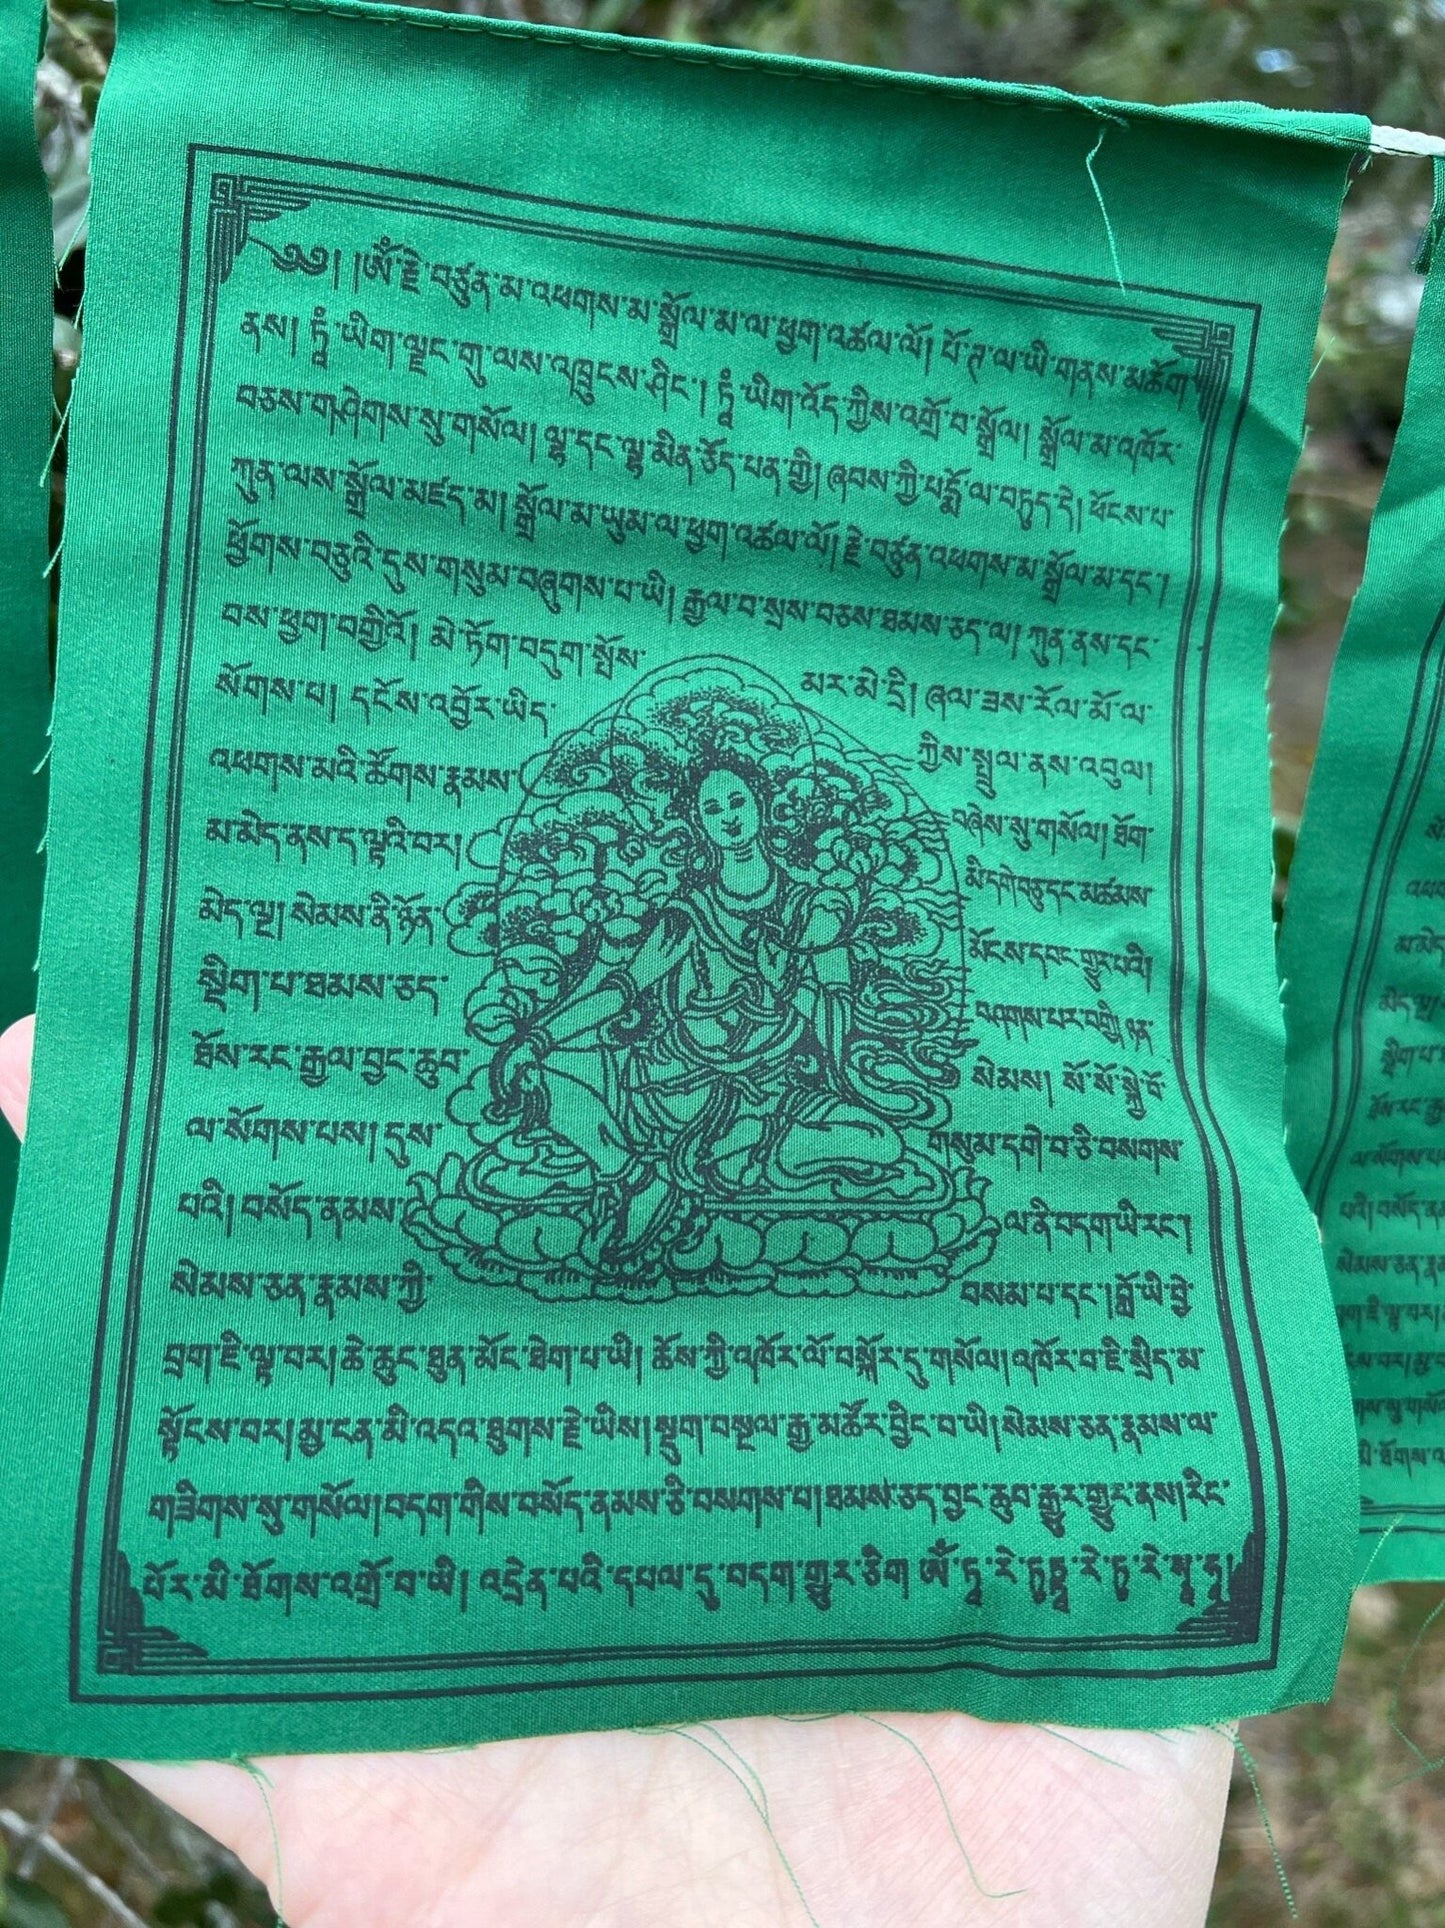 ༄༅། །ཨོཾ་རྗེ་བཙུན་མ་འཕགས་མ་སྒྲོལ་མ་ལ་ཕྱག་འཚལ་ལོ། པོ་ཏ་ལ་ཡི་གནས་མཆོག་
ནས། ཏཱཾ་ཡིག་ལྗང་གུ་ལས་འཁྲུངས་ཤིང་། ཏཱཾ་ཡིག་འོད་ཀྱིས་འགྲོ་བ་སྒྲོལ། སྒྲོལ་མ་འཁོར་
བཅས་གཤེགས་སུ་གསོལ། ལྷ་དང་ལྷ་མིན་ཅོད་པན་གྱི། ཞབས་ཀྱི་པདྨོ་ལ་བཏུད་དེ། ཕོངས་པ་
ཀུན་ལས་སྒྲོལ་མཛད་མ། སྒྲོལ་མ་ཡུམ་ལ་ཕྱག་འཚལ་ལོ། རྗེ་བཙུན་འཕགས་མ་སྒྲོལ་མ་དང་།
ཕྱོགས་བཅུའི་དུས་གསུམ་བཞུགས་པ་ཡི། རྒྱལ་བ་སྲས་བཅས་ཐམས་ཅད་ལ། ཀུན་ནས་དང་
བས་ཕྱག་བགྱིའོ། མེ་ཏོག་བདུག་སྤོས་ མར་མེ་དྲི། ཞལ་ཟས་རོལ་མོ་ལ་
སོགས་པ། དངོས་འབྱོར་ཡིད་ ཀྱིས་སྤྲུལ་ནས་འབུལ།
འཕགས་མའི་ཚོགས་རྣམས་ བཞེས་སུ་གསོལ། ཐོག་
མ་མེད་ནས་ད་ལྟའི་བར། མི་དགེ་བཅུ་དང་མཚམས་
མེད་ལྔ། སེམས་ནི་ཉོན་ མོངས་དབང་གྱུར་པའི།
སྡིག་པ་ཐམས་ཅད་ བཤགས་པར་བགྱི། ཉན་
ཐོས་རང་རྒྱལ་བྱང་ཆུབ་ སེམས། སོ་སོ་སྐྱེ་བོ་
ལ་སོགས་པས། དུས་ གསུམ་དགེ་བ་ཅི་བསགས་
པའི། བསོད་ནམས་ ལ་ནི་བདག་ཡི་རང་།
སེམས་ཅན་རྣམས་ཀྱི་ བསམ་པ་དང་། བློ་ཡི་བྱེ་
བྲག་ཇི་ལྟ་བར། ཆེ་ཆུང་ཐུན་མོང་ཐེག་པ་ཡི། ཆོས་ཀྱི་འཁོར་ལོ་བསྐོར་དུ་གསོལ། འཁོར་བ་ཇི་སྲིད་མ་
སྟོངས་བར། མྱ་ངན་མི་འདའ་ཐུགས་རྗེ་ཡིས། སྡུག་བསྔལ་རྒྱ་མཚོར་བྱིང་བ་ཡི། སེམས་ཅན་རྣམས་ལ་
གཟིགས་སུ་གསོལ། བདག་གིས་བསོད་ནམས་ཅི་བསགས་པ། ཐམས་ཅད་བྱང་ཆུབ་རྒྱུར་གྱུར་ནས། རིང་
པོར་མི་ཐོགས་འགྲོ་བ་ཡི། འདྲེན་པའི་དཔལ་དུ་བདག་གྱུར་ཅིག ཨོཾ་ཏཱ་རེ་ཏུཏྟཱ་རེ་ཏུ་རེ་སྭཱ་ཧཱ།